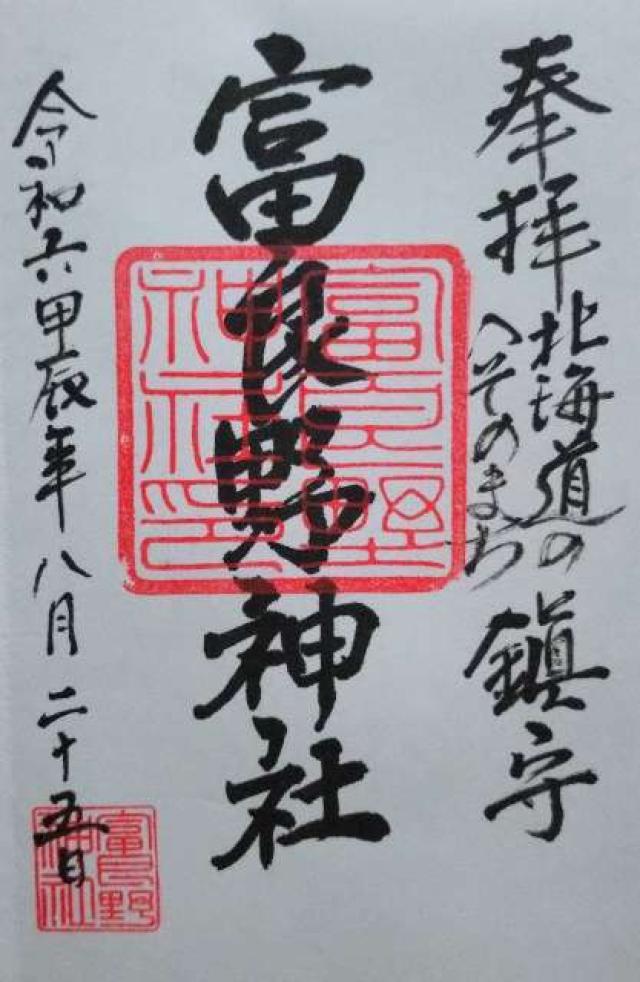 奉拝
北海道の
へそのまち
鎮守
富良野神社
富良野
神社印
令和六甲辰年八月二十五日
富良野
神社